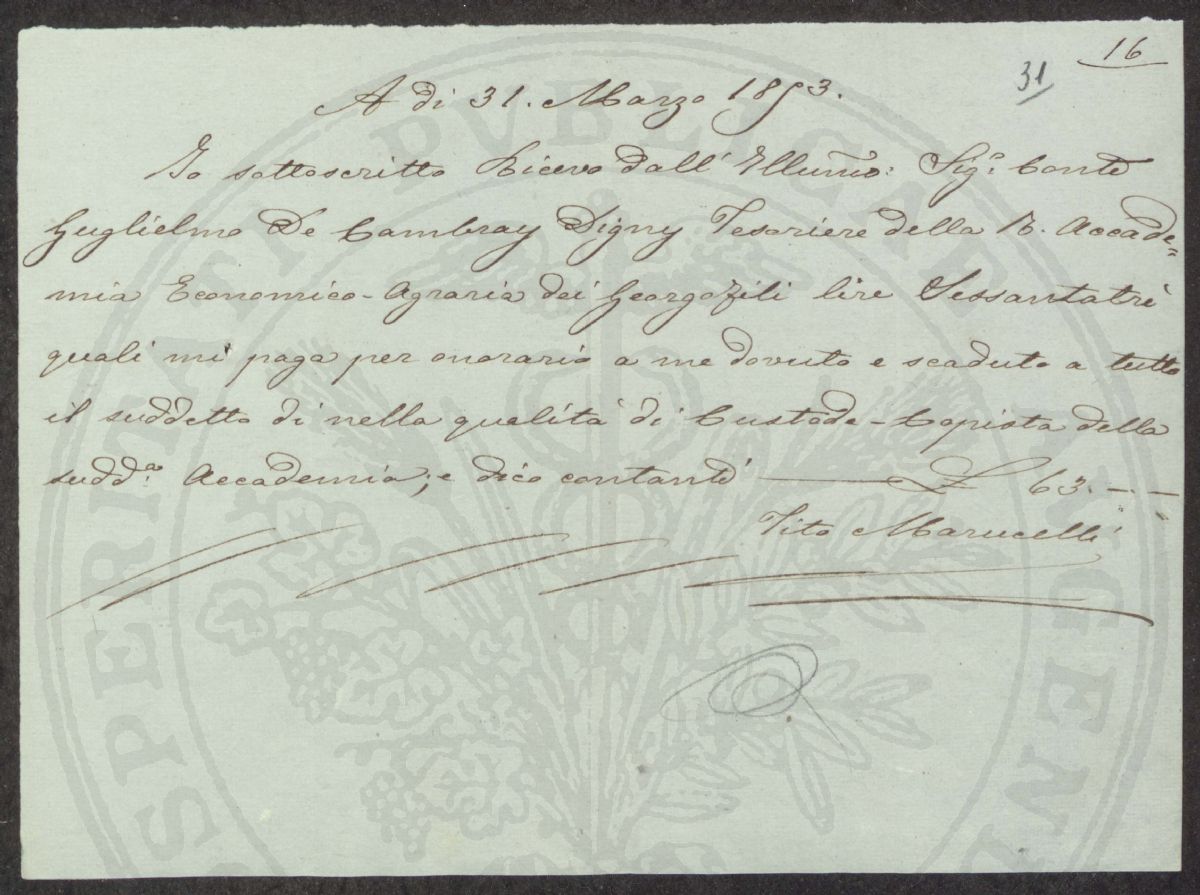 16
31
A di 31. Marzo 1853.
Io sottoscritto Ricevo dall' Illumo: Sigr. Conte
Guglielmo De Cambray Digny Tesoriere della R. Accade=
mia Economico-Agraria dei Georgofili lire Sessantatrè
quali mi paga per onorario a me dovuto e scaduto a tutto
il suddetto di nella qualità di Custode-Copista della
sudda. Accademia; e dico contanti £ 63. - -
Tito Marucelli
PROSPERITATI PVBLICAE AVGENDAE